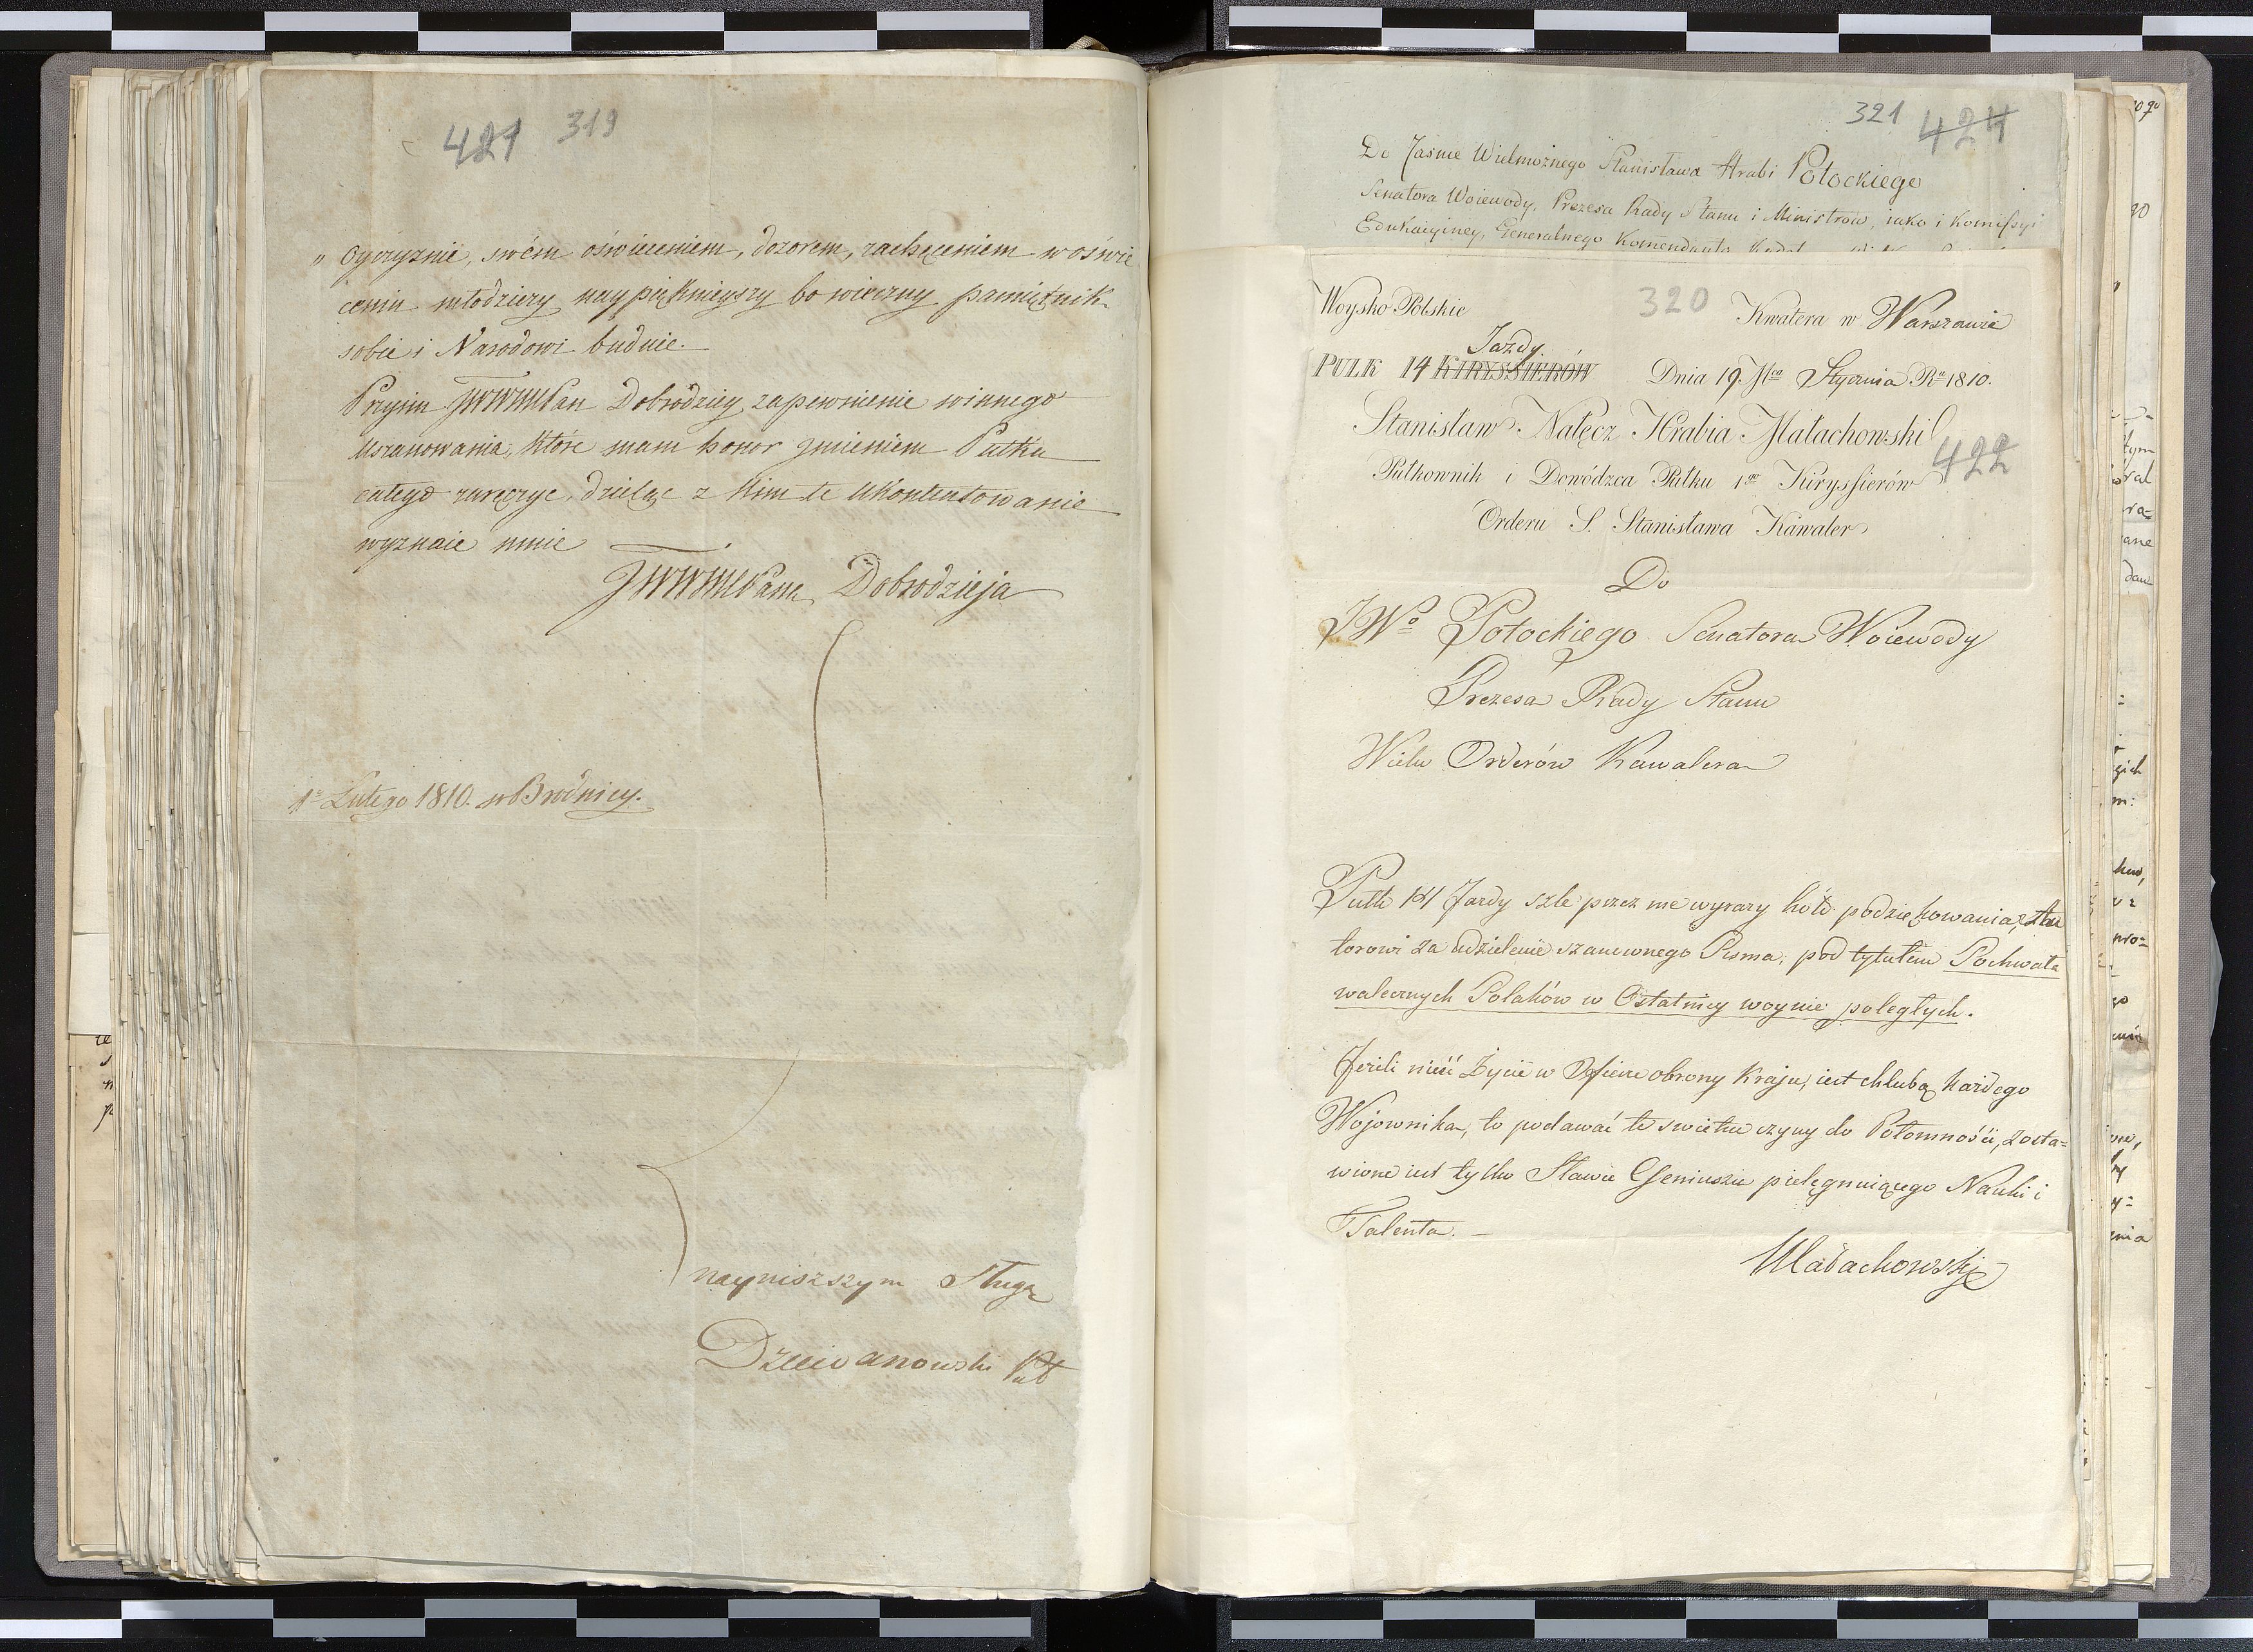 421 319
„ Oyczyznie, swém oświeceniem, dozorem, zachęceniem w oświe
ceniu młodzieży naypięknieyszy bo wieczny pamiętnik
sobie i Narodowi buduie.
Przyim JWWMPan Dobrodziey zapewnienie winnego
Uszanowania, które mam honor Jmieniem Pułku
całego zaręczyc, dzieląc z Nim te Ukontentowanie
wyznaie mnie
JWWMPana Dobrodzieja
1º Lutego 1810. w Brodnicy.
nayniższym Sługą
Dziewanowski Puł
321 424
Do Jaśnie Wielmożnego Stanisława Hrabi Potockiego
Senatora Woiewody, Prezesa Rady Stanu i Ministrów, iako i Komissyi
Edukacyiney, Generalnego Komendanta
Woysko Polskie
320 Kwatera w Warszawie
Jazdy
PULK 14 KIRYSSIERÓW Dnia 19. Mca Stycznia Ru 1810.
Stanisław Nałęcz Hrabia Małachowski
422
Pułkownik i Dowódzca Pułku 1go Kiryssierów
Orderu S. Stanisława Kawaler
Do
JWo Potockiego Senatora Woiewody
Prezesa Rady Stanu
Wielu Orderów Kawalera
Pułk 14 Jazdy szle przez me wyrazy hołd podziękowania,
torowi za udzielenie szanownego Pisma, pod tytułem Pochwała
walecznych Polaków w Ostatniey woynie poległych.
Jeżeli nieść Życie w Ofierze obrony Kraju, iest chlubą każdego
Wojownika, to podawać te swietne czyny do Potomności, zosta=
wione iest tylko Sławie Geniuszu pielęgnuiącego Nauki i
Talenta. —
Małachowski